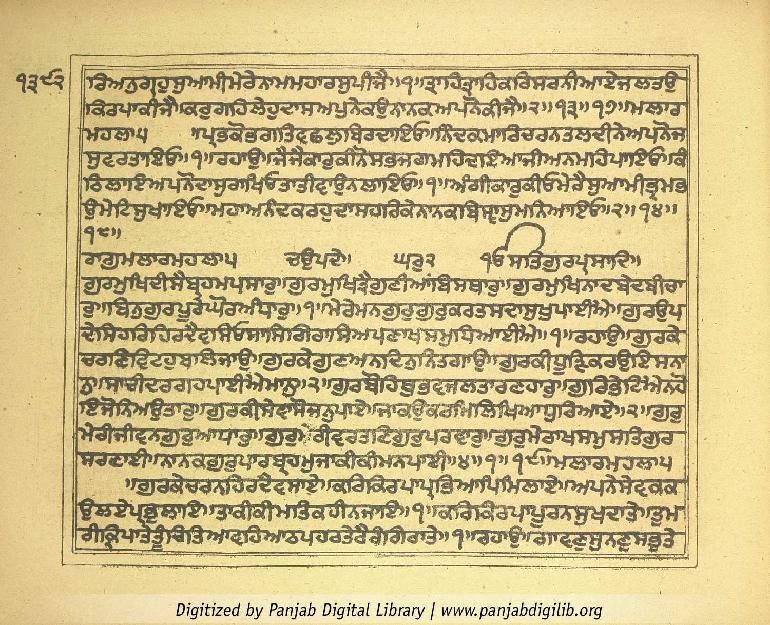 ੧੩੯੩
ਰਿਅਨੁਗ੍ਰਹੁਸੁਆਮੀਮੇਰੇਨਾਮਮਹਾਰਸੁਪੀਜੈ॥੧॥ਤ੍ਰਾਹਿਤ੍ਰਾਹਿਕਰਿਸਰਨੀਆਏਜਲਤਉ
ਕਿਰਪਾਕੀਜੈ॥ਕਰੁਗਹਿਲੇਹੁਦਾਸਅਪੁਨੇਕਉਨਾਨਕਅਪਨੋਕੀਜੈ॥੨॥੧੩॥੧੭॥ਮਲਾਰ
ਮਹਲਾ੫ ॥ਪ੍ਰਭਕੋਭਗਤਿਵਛਲੁਬਿਰਦਾਇਓ॥ਨਿੰਦਕਮਾਰਿਚਰਨਤਲਦੀਨੇਅਪਨੋਜ
ਸੁਵਰਤਾਇਓ॥੧॥ਰਹਾਉ॥ਜੈਜੈਕਾਰੁਕੀਨੋਸਭਜਗਮਹਿਦਇਆਜੀਅਨਮਹਿਪਾਇਓ॥ਕੰ
ਠਿਲਾਇਅਪਨੋਦਾਸੁਰਾਖਿਓਤਾਤੀਵਾਉਨਲਾਇਓ॥੧॥ਅੰਗੀਕਾਰੁਕੀਓਮੇਰੇਸੁਆਮੀਭ੍ਰਮਭ
ਉਮੇਟਿਸੁਖਾਇਓ॥ਮਹਾਅਨੰਦਕਰਹੁਦਾਸਹਰਿਕੇਨਾਨਕਬਿਸ੍ਵਾਸੁਮਨਿਆਇਓ॥੨॥੧੪॥
੧੮॥
ਰਾਗੁਮਲਾਰਮਹਲਾ੫ ਚਉਪਦੇ॥ ਘਰੁ੨ ੴਸਤਿਗੁਰਪ੍ਰਸਾਦਿ॥
ਗੁਰਮੁਖਿਦੀਸੈਬ੍ਰਹਮਪਸਾਰੁ॥ਗੁਰਮੁਖਿਤ੍ਰੈਗੁਣੀਆਂਬਿਸਥਾਰੁ॥ਗੁਰਮੁਖਿਨਾਦਬੇਦਬੀਚਾ
ਰੁ॥ਬਿਨੁਗੁਰਪੂਰੇਘੋਰਅੰਧਾਰੁ॥੧॥ਮੇਰੇਮਨਗੁਰੁਗੁਰੁਕਰਤਸਦਾਸੁਖੁਪਾਈਐ॥ਗੁਰਉਪ
ਦੇਸਿਹਰਿਹਿਰਦੈਵਸਿਓਸਾਸਿਗਿਰਾਸਿਅਪਣਾਖਸਮੁਧਿਆਈਐ॥੧॥ਰਹਾਉ॥ਗੁਰਕੇ
ਚਰਣਵਿਟਹੁਬਲਿਜਾਉ॥ਗੁਰਕੇਗੁਣਅਨਦਿਨੁਨਿਤਗਾਉ॥ਗੁਰਕੀਧੂੜਿਕਰਉਇਸਨਾ
ਨੁ॥ਸਾਚੀਦਰਗਹਪਾਈਐਮਾਨੁ॥੨॥ਗੁਰੁਬੋਹਿਥੁਭਵਜਲਤਾਰਣਹਾਰੁ॥ਗੁਰਿਭੇਟਿਐਨਹੋ
ਇਜੋਨਿਅਉਤਾਰੁ॥ਗੁਰਕੀਸੇਵਾਸੋਜਨੁਪਾਏ॥ਜਾਕਉਕਰਮਿਲਿਖਿਆਧੁਰਿਆਏ॥੩॥ਗੁਰੁ
ਮੇਰੀਜੀਵਨਗੁਰੁਆਧਾਰੁ॥ਗੁਰੁਮੇਰੀਵਰਤਣਿਗੁਰੁਪਰਵਾਰੁ॥ਗੁਰੁਮੇਰਾਖਸਮੁਸਤਿਗੁਰ
ਸਰਣਾਈ॥ਨਾਨਕਗੁਰੁਪਾਰਬ੍ਰਹਮੁਜਾਕੀਕੀਮਨਪਾਈ॥੪॥੧॥੧੯॥ਮਲਾਰਮਹਲਾ੫
॥ਗੁਰਕੇਚਰਨਹਿਰਦੈਵਸਾਏ॥ਕਰਿਕਿਰਪਾਪ੍ਰਭਿਆਪਿਮਿਲਾਏ॥ਅਪਨੇਸੇਵਕਕ
ਉਲਏਪ੍ਰਭੁਲਾਏ॥ਤਾਕੀਕੀਮਤਿਕਹੀਨਜਾਏ॥੧॥ਕਰਿਕਿਰਪਾਪੂਰਨਸੁਖਦਾਤੇ॥ਤੁਮ
ਰੀਕ੍ਰਿਪਾਤੇਤੂੰਚਿਤਿਆਵਹਿਆਠਪਹਰਤੇਰੈਰੰਗਿਰਾਤੇ॥੧॥ਰਹਾਉ॥ਗਾਵਣੁਸੁਨਣੁਸਭੁਤੇ
Digitized by Panjab Digital Library | www.panjabdigilib.org